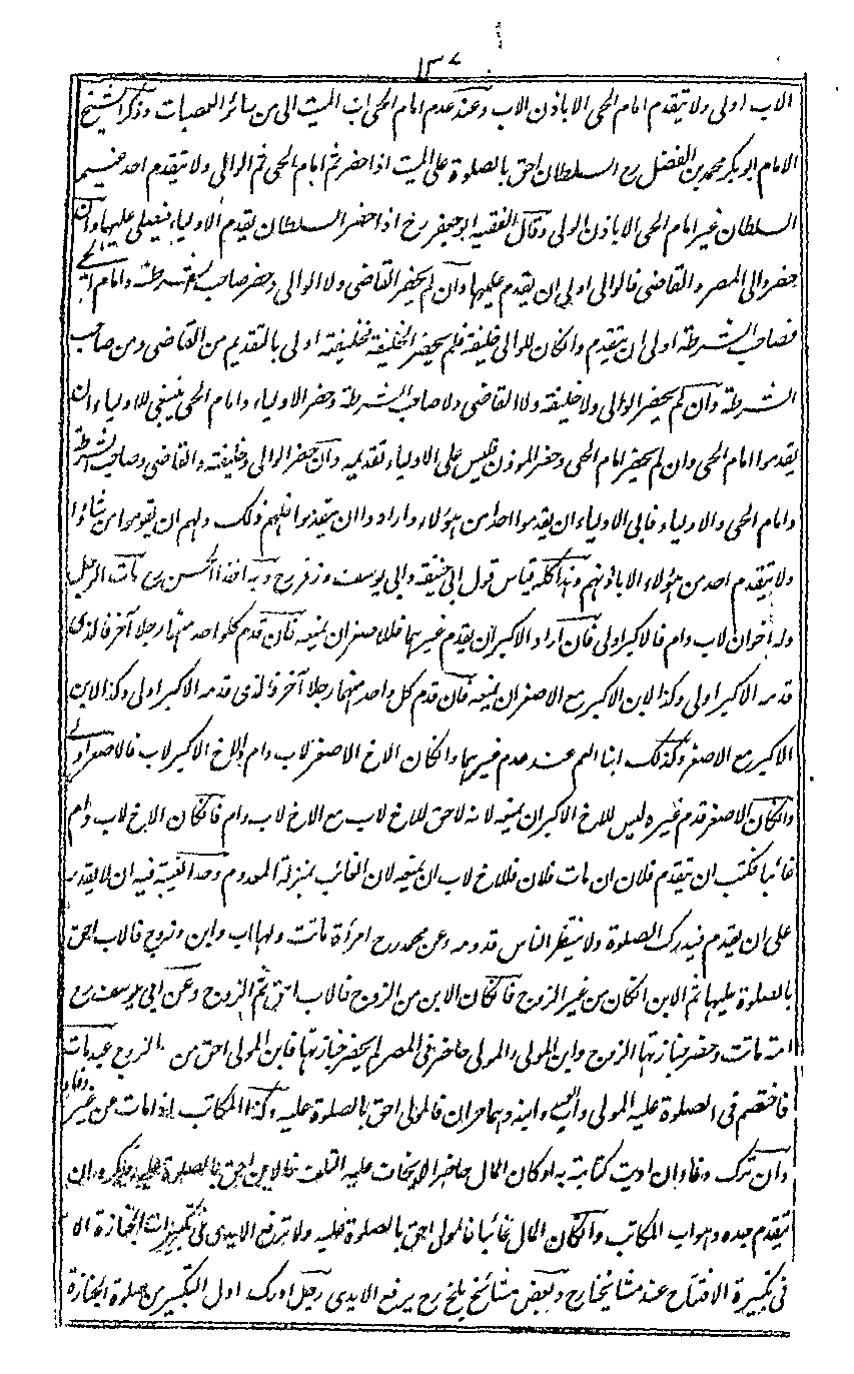 ١٣٧
الاب اولى ولا يتقدم امام الحى الا باذن الاب وعند عدم امام الحى اب الميت الى من سائر العصبات وذكر الشيخ
الامام ابو بكر محمد بن الفضل رح السلطان احق بالصلوة على الميت اذا حضر ثم امام الحى ثم الوالى ولا يتقدم احد
السلطان غير امام الحى الا باذن الولى وقال الفقيه ابو جعفر رح اذا حضر السلطان يقدم الاولياء فيصلى عليها وان
حضر والى المصر والقاضى فالوالى اولى ان يقدم عليها وان لم يحضر القاضى ولا الوالى وحضر صاحب الشرطة وامام الحى
فصاحب الشرطة اولى ان يتقدم وان كان للوالى خليفة فلم يحضر الخليفة فخليفته اولى بالتقديم من القاضى ومن صاحب
الشرطة وان لم يحضر الوالى ولا خليفته ولا القاضى ولا صاحب الشرطة وحضر الاولياء وامام الحى ينبغى للاولياء ان
يقدموا امام الحى وان لم يحضر امام الحى وحضر المؤذن فليس على الاولياء تقديمه وان حضر الوالى وخليفته والقاضى وصاحب الشرطة
وامام الحى والاولياء فابى الاولياء ان يقدموا احدا من هؤلاء وارادوا ان يتقدموا فلهم ذلك ولهم ان يقدموا من شاؤا
ولا يتقدم احد من هؤلاء الا باذنهم وهذا كله قياس قول ابى حنيفة وابى يوسف وزفر رح وبه اخذ الحسن رح مات الرجل
وله اخوان لاب وام فالاكبر اولى فان اراد الاكبر ان يقدم غيرهما فللاصغر ان يمنعه فان قدم كل واحد منهما رجلا آخر فالذى
قدمه الاكبر اولى وكذا الابن الاكبر مع الاصغر ان يمنعه فان قدم كل واحد منهما رجلا آخر فالذى قدمه الاكبر اولى وكذا الابن
الاكبر مع الاصغر وكذلك ابنا العم عند عدم غيرهما وان كان الاخ الاصغر لاب وام والاخ الاكبر لاب فالاصغر اولى
وان كان الاصغر قدم غيره ليس للاخ الاكبر ان يمنعه لانه لا حق للاخ لاب مع الاخ لاب وام فان كان الاخ لاب وام
غائبا فكتب ان يتقدم فلان ان مات فلان فللاخ لاب ان يمنعه لان الغائب بمنزلة المعدوم وحد الغيبة فيه ان لا يقدر
على ان يقدم فيدرك الصلوة ولا ينتظر الناس قدومه وعن محمد رح امرأة ماتت ولها اب وابن وزوج فالاب احق
بالصلوة عليها ثم الابن ان كان من غير الزوج فان كان الابن من الزوج فالاب احق ثم الزوج وعن ابى يوسف رح
امة ماتت وحضر جنازتها الزوج وابن المولى والمولى حاضر فى المصر لم يحضر جنازتها فابن المولى احق من الزوج عبد مات
فاختصم فى الصلوة عليه المولى وابيه وابنه وهما حران فالمولى احق بالصلوة عليه وكذا المكاتب اذا مات من غير وفاء
وان ترك وفاء وان اديت كتابته به او كان المال حاضرا لا يخاف عليه التلف فالابن احق بالصلوة عليه ويكره ان
يتقدم جده وهو اب المكاتب وان كان المال غائبا فالمولى احق بالصلوة عليه ولا ترفع الايدى فى تكبيرات الجنازة الا
فى تكبيرة الافتتاح عند مشايخنا رح وبعض مشائخ بلخ رح يرفع الايدى رجل ادرك اول التكبير من صلوة الجنازة